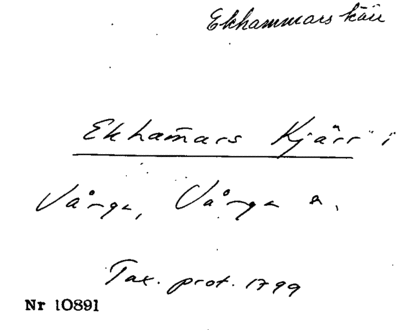 Ekhammars kärr
Ekham̄ars Kjärr i
Vånga, Vånga s.
Tax. prot. 1799
Nr 10891